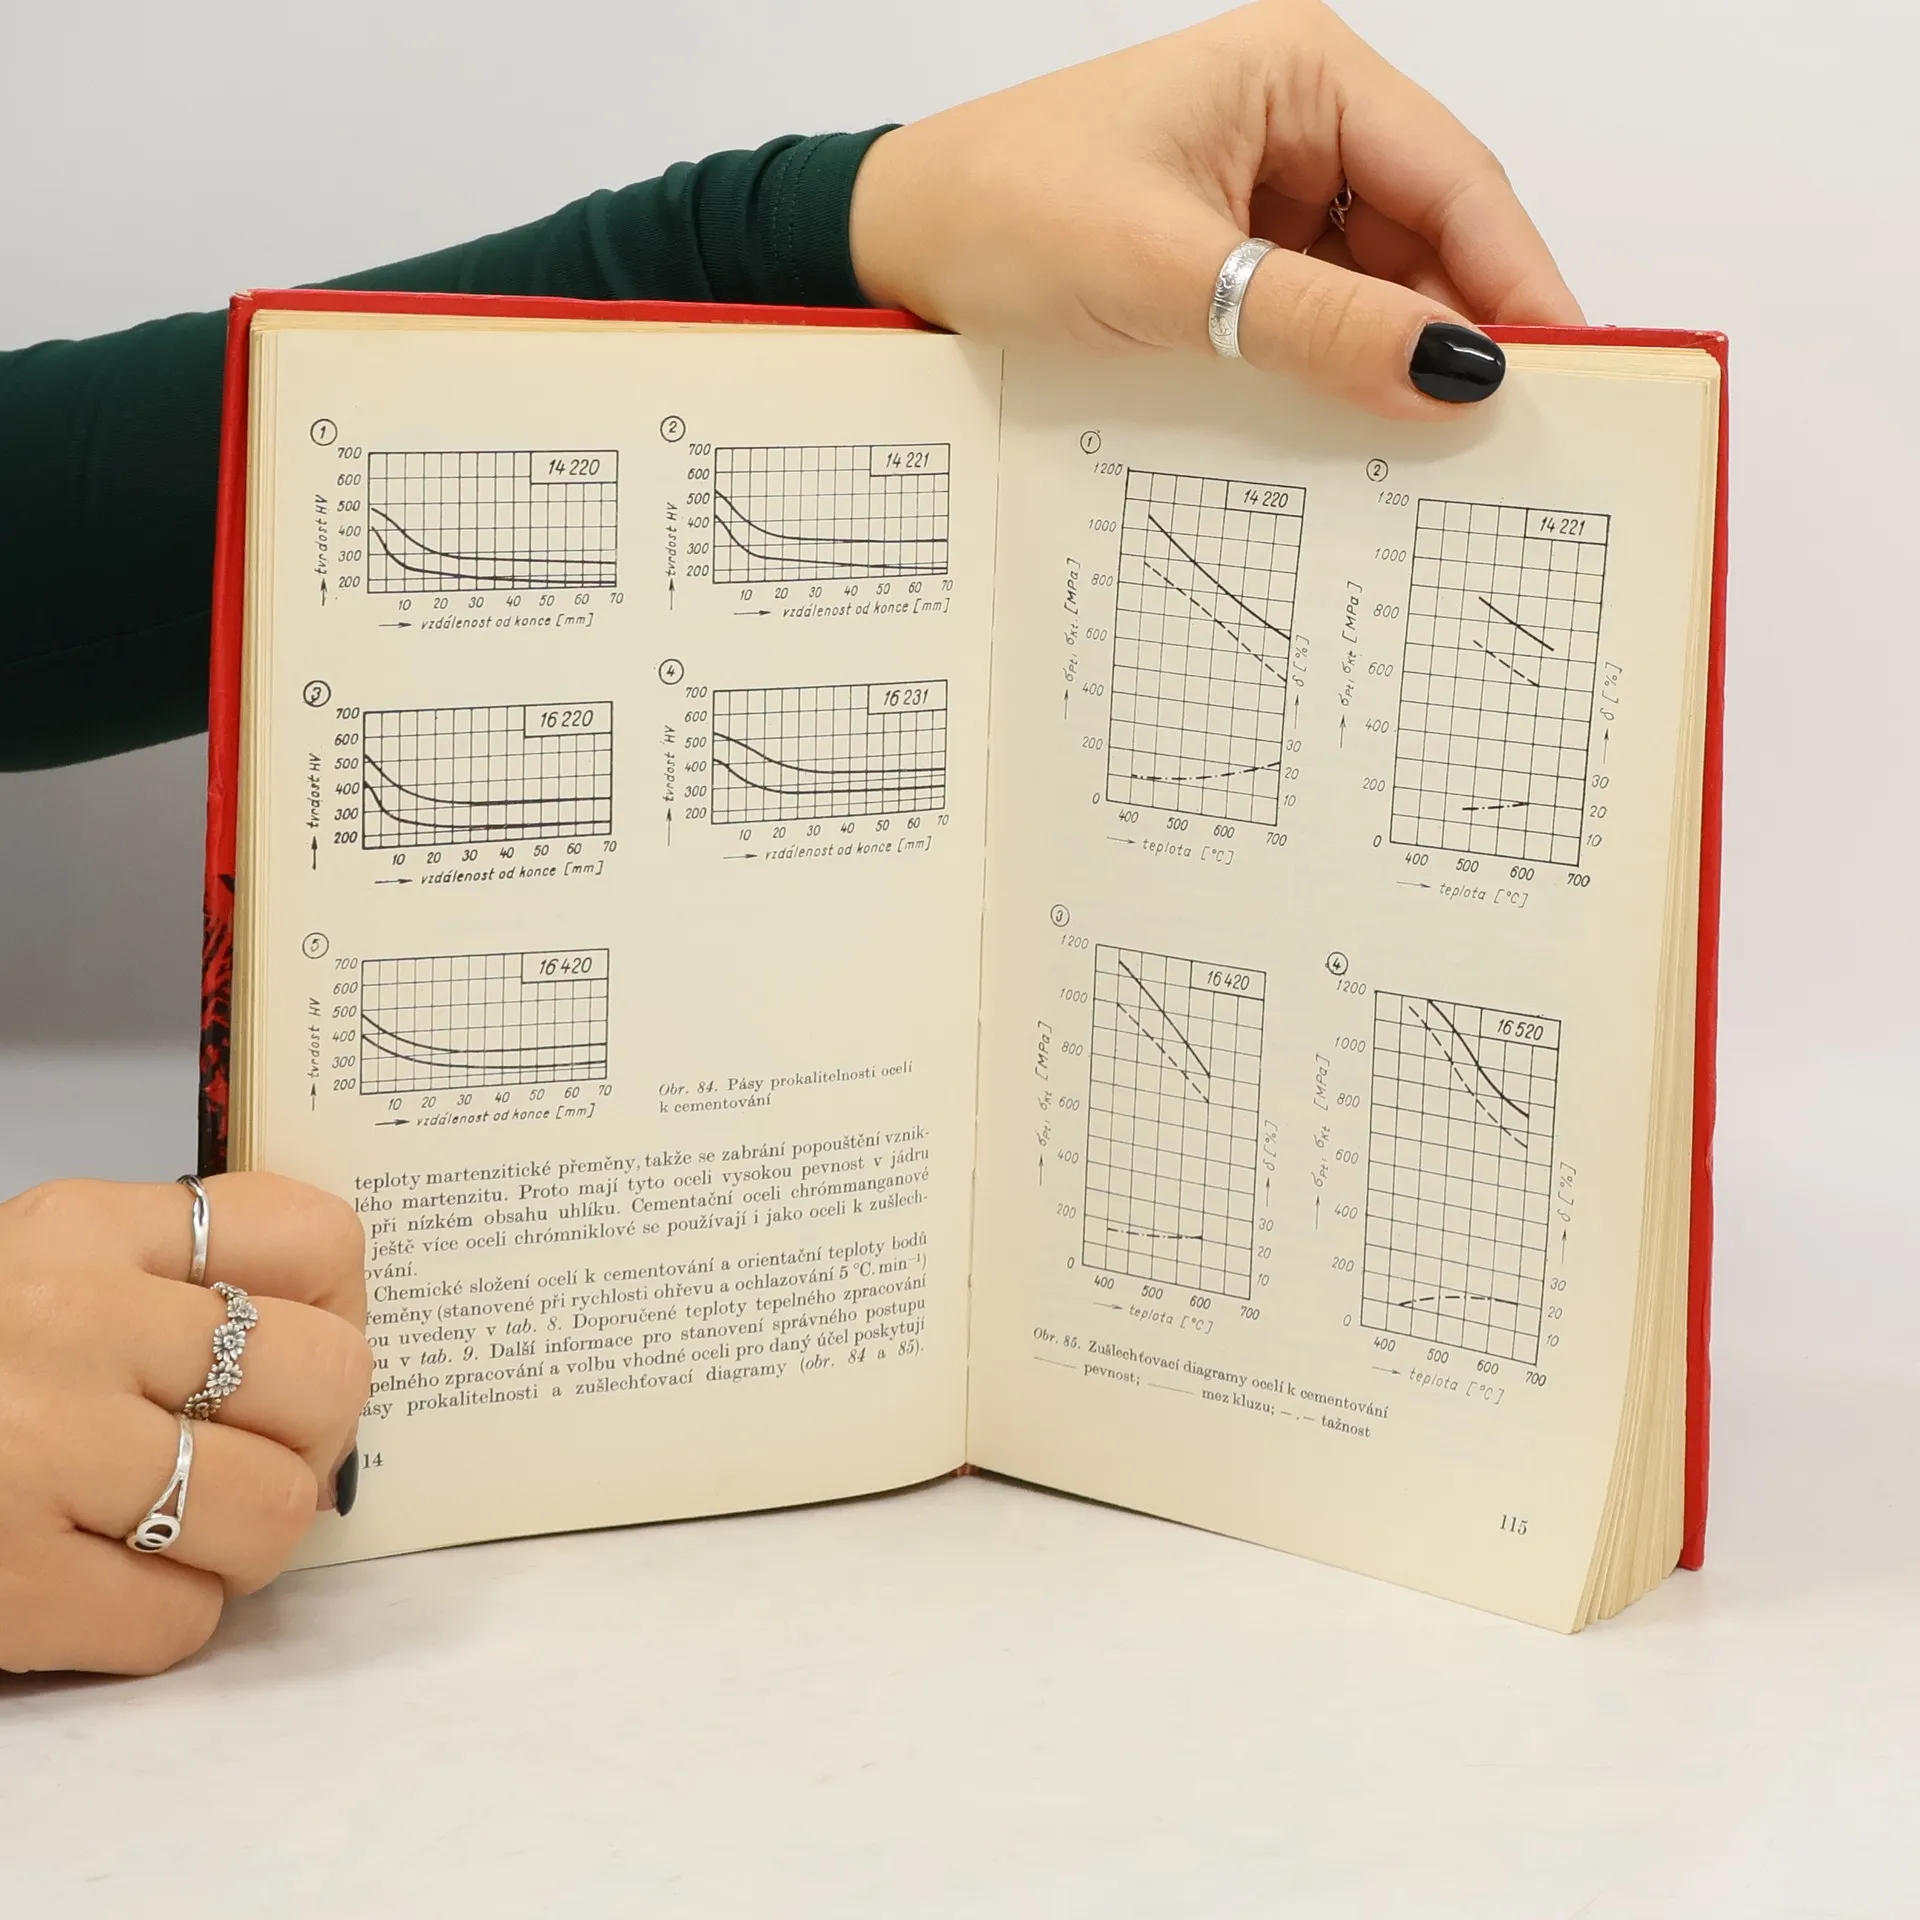 1
14 220
700
600
500
400
300
200
tvrdost HV
10 20 30 40 50 60 70
vzdálenost od konce [mm]
2
14 221
700
600
500
400
300
200
tvrdost HV
10 20 30 40 50 60 70
vzdálenost od konce [mm]
3
16 220
700
600
500
400
300
200
tvrdost HV
10 20 30 40 50 60 70
vzdálenost od konce [mm]
4
16 231
700
600
500
400
300
200
tvrdost HV
10 20 30 40 50 60 70
vzdálenost od konce [mm]
5
16 420
700
600
500
400
300
200
tvrdost HV
10 20 30 40 50 60 70
vzdálenost od konce [mm]
Obr. 84. Pásy prokalitelnosti ocelí
k cementování
teploty martenzitické přeměny, takže se zabrání popouštění vznik-
lého martenzitu. Proto mají tyto oceli vysokou pevnost v jádru
při nízkém obsahu uhlíku. Cementační oceli chrómmanganové
ještě více oceli chrómniklové se používají i jako oceli k zušlech-
ování.
Chemické složení ocelí k cementování a orientační teploty bodů
řeměny (stanovené při rychlosti ohřevu a ochlazování 5 °C.min⁻¹)
ou uvedeny v tab. 8. Doporučené teploty tepelného zpracování
ou v tab. 9. Další informace pro stanovení správného postupu
pelného zpracování a volbu vhodné oceli pro daný účel poskytují
ásy prokalitelnosti a zušlechťovací diagramy (obr. 84 a 85).
14
1
14 220
1200
1000
800
600
400
200
0
σPt, σKt [MPa]
δ [%]
30
20
10
400 500 600 700
teplota [°C]
2
14 221
1200
1000
800
600
400
200
0
σPt, σKt [MPa]
δ [%]
30
20
10
400 500 600 700
teplota [°C]
3
16 420
1200
1000
800
600
400
200
0
σPt, σKt [MPa]
δ [%]
30
20
10
400 500 600 700
teplota [°C]
4
16 520
1200
1000
800
600
400
200
0
σPt, σKt [MPa]
δ [%]
30
20
10
400 500 600 700
teplota [°C]
Obr. 85. Zušlechťovací diagramy ocelí k cementování
—— pevnost; —— mez kluzu; – . – tažnost
115